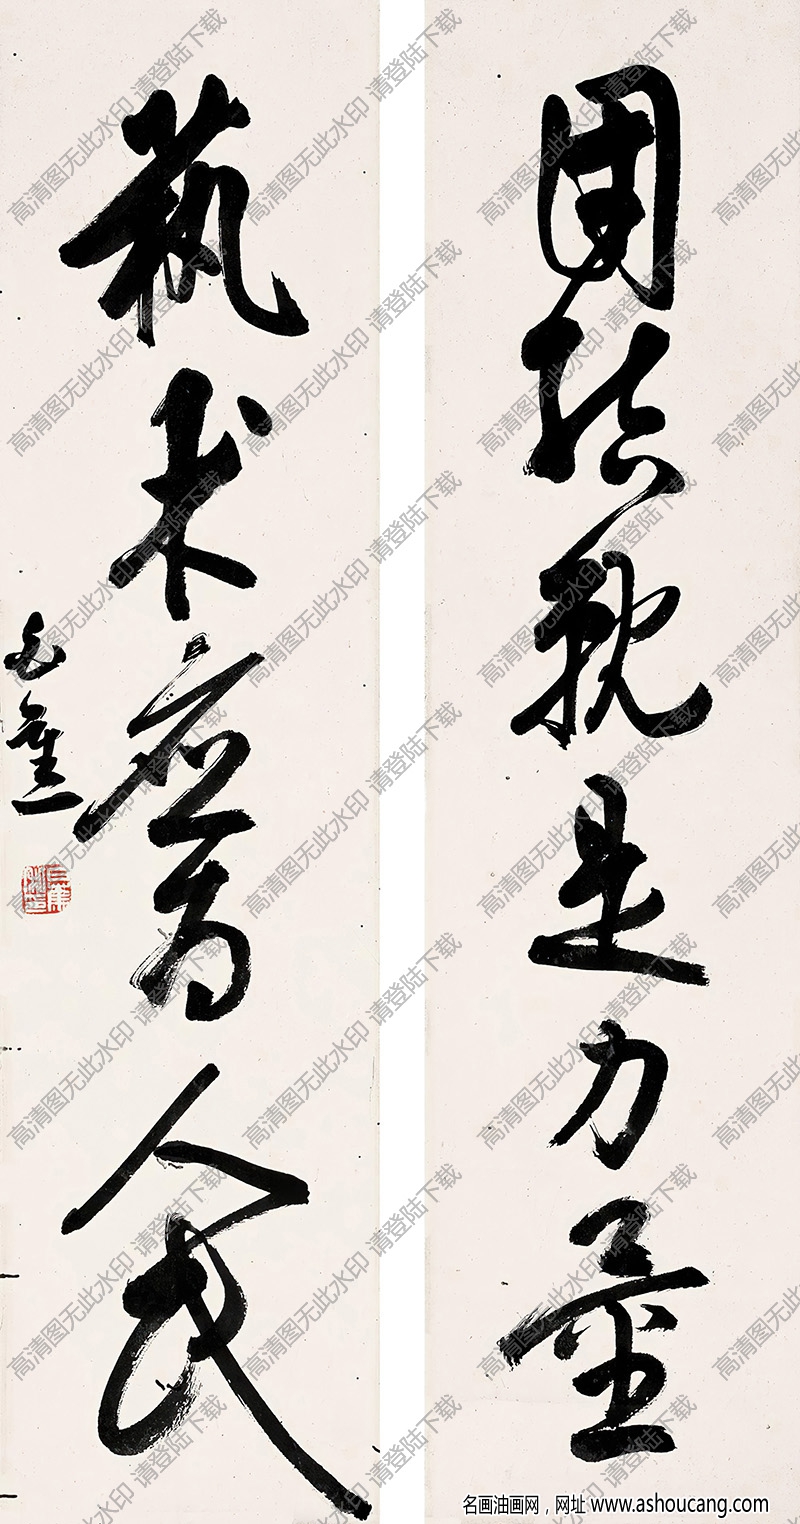 團結就是力量
蓺术應為人民
高清图无此水印 请登陆下载
名画油画网，网址 www.ashoucang.com